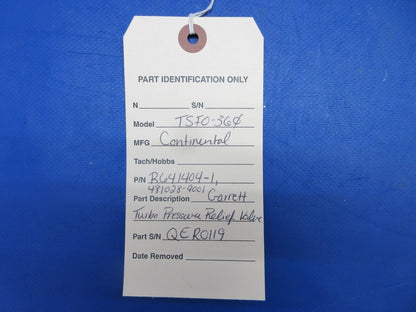 PART IDENTIFICATION ONLY
N S/N
Model TSIO-360
MFG Continental
Tach/Hobbs
P/N R641404-1,
481028-9001
Part Description Garrett
Turbo Pressure Relief Valve
Part S/N QER0119
Date Removed